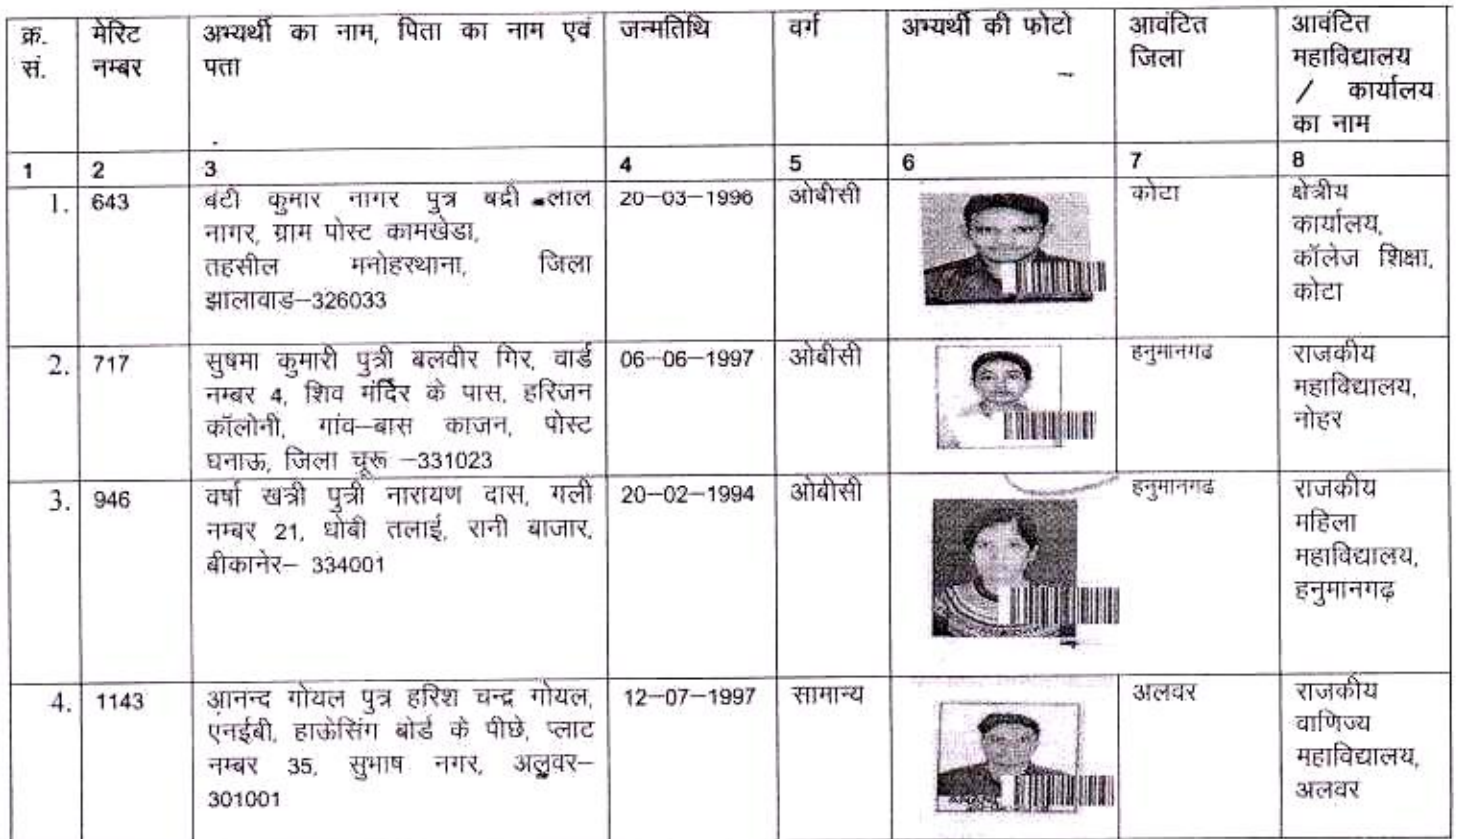 क्र. सं.
मेरिट नम्बर
अभ्यर्थी का नाम, पिता का नाम एवं पता
जन्मतिथि
वर्ग
अभ्यर्थी की फोटो
आवंटित जिला
आवंटित महाविद्यालय / कार्यालय का नाम
1 2 3 4 5 6 7 8
1. 643
बंटी कुमार नागर पुत्र बद्री लाल
नागर, ग्राम पोस्ट कामखेडा,
तहसील मनोहरथाना, जिला
झालावाड–326033
20–03–1996
ओबीसी
कोटा
क्षेत्रीय
कार्यालय,
कॉलेज शिक्षा,
कोटा
2. 717
सुषमा कुमारी पुत्री बलवीर गिर, वार्ड
नम्बर 4, शिव मंदिर के पास, हरिजन
कॉलोनी, गांव–बास काजन, पोस्ट
घनाऊ, जिला चूरू –331023
06–06–1997
ओबीसी
हनुमानगढ
राजकीय
महाविद्यालय,
नोहर
3. 946
वर्षा खत्री पुत्री नारायण दास, गली
नम्बर 21, धोबी तलाई, रानी बाजार,
बीकानेर– 334001
20–02–1994
ओबीसी
हनुमानगढ
राजकीय
महिला
महाविद्यालय,
हनुमानगढ़
4. 1143
आनन्द गोयल पुत्र हरिश चन्द्र गोयल,
एनईबी, हाऊसिंग बोर्ड के पीछे, प्लाट
नम्बर 35, सुभाष नगर, अलवर–
301001
12–07–1997
सामान्य
अलवर
राजकीय
वाणिज्य
महाविद्यालय,
अलवर